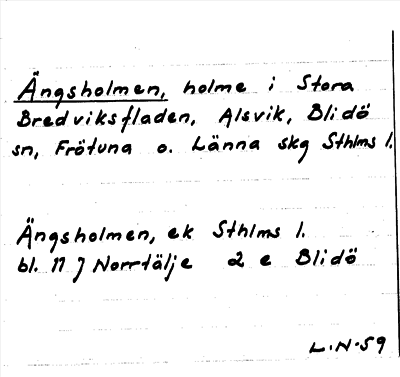 Ängsholmen, holme i Stora
Bredviksfladen, Alsvik, Blidö
sn, Frötuna o. Länna skg Sthlms l.
Ängsholmen, ek Sthlms l.
bl. 11 J Norrtälje 2 e Blidö
L.N-59